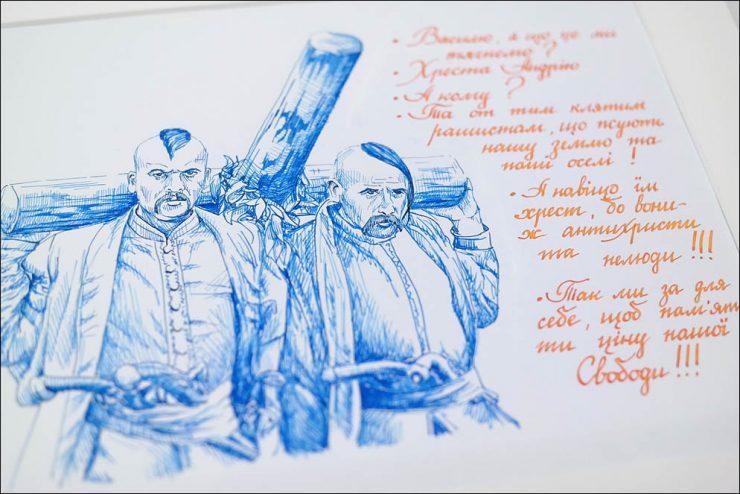 • Василю, а що це ми
тягнемо?
• Хреста Андрію
• А кому?
• Та от тим клятим
рашистам, що псують
нашу землю та
наші оселі!
• А навіщо їм
хрест, бо вони-
ж антихристи
та нелюди!!!
• Так ми за для
себе, щоб пам'ята
ти ціну нашої
Свободи!!!